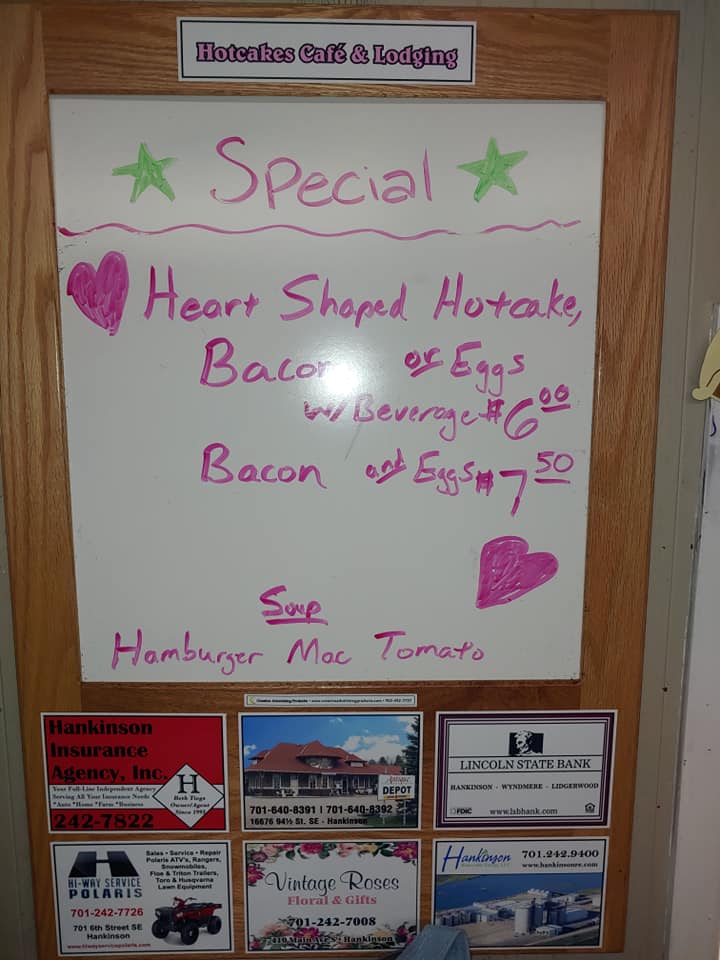 Hotcakes Café & Lodging
Special
Heart Shaped Hotcake,
Bacon or Eggs
w/ Beverage $6.00
Bacon and Eggs $7.50
Soup
Hamburger Mac Tomato
Hankinson
Insurance
Agency, Inc.
Your Full-Line Independent Agency
Serving All Your Insurance Needs
*Auto *Home *Farm *Business
242-7822
H
Beth Tiegs
Owner/Agent
Since 1991
Antique
DEPOT
701-640-8391 | 701-640-8392
16676 94½ St. SE - Hankinson
LINCOLN STATE BANK
HANKINSON - WYNDMERE - LIDGERWOOD
FDIC
www.lsbhank.com
HI-WAY SERVICE
POLARIS
Sales - Service - Repair
Polaris ATV's, Rangers,
Snowmobiles,
Floe & Triton Trailers,
Toro & Husqvarna
Lawn Equipment
701-242-7726
701 6th Street SE
Hankinson
www.hiwayservicepolaris.com
Vintage Roses
Floral & Gifts
701-242-7008
410 Main Ave S - Hankinson
Hankinson
701.242.9400
www.hankinsonre.com